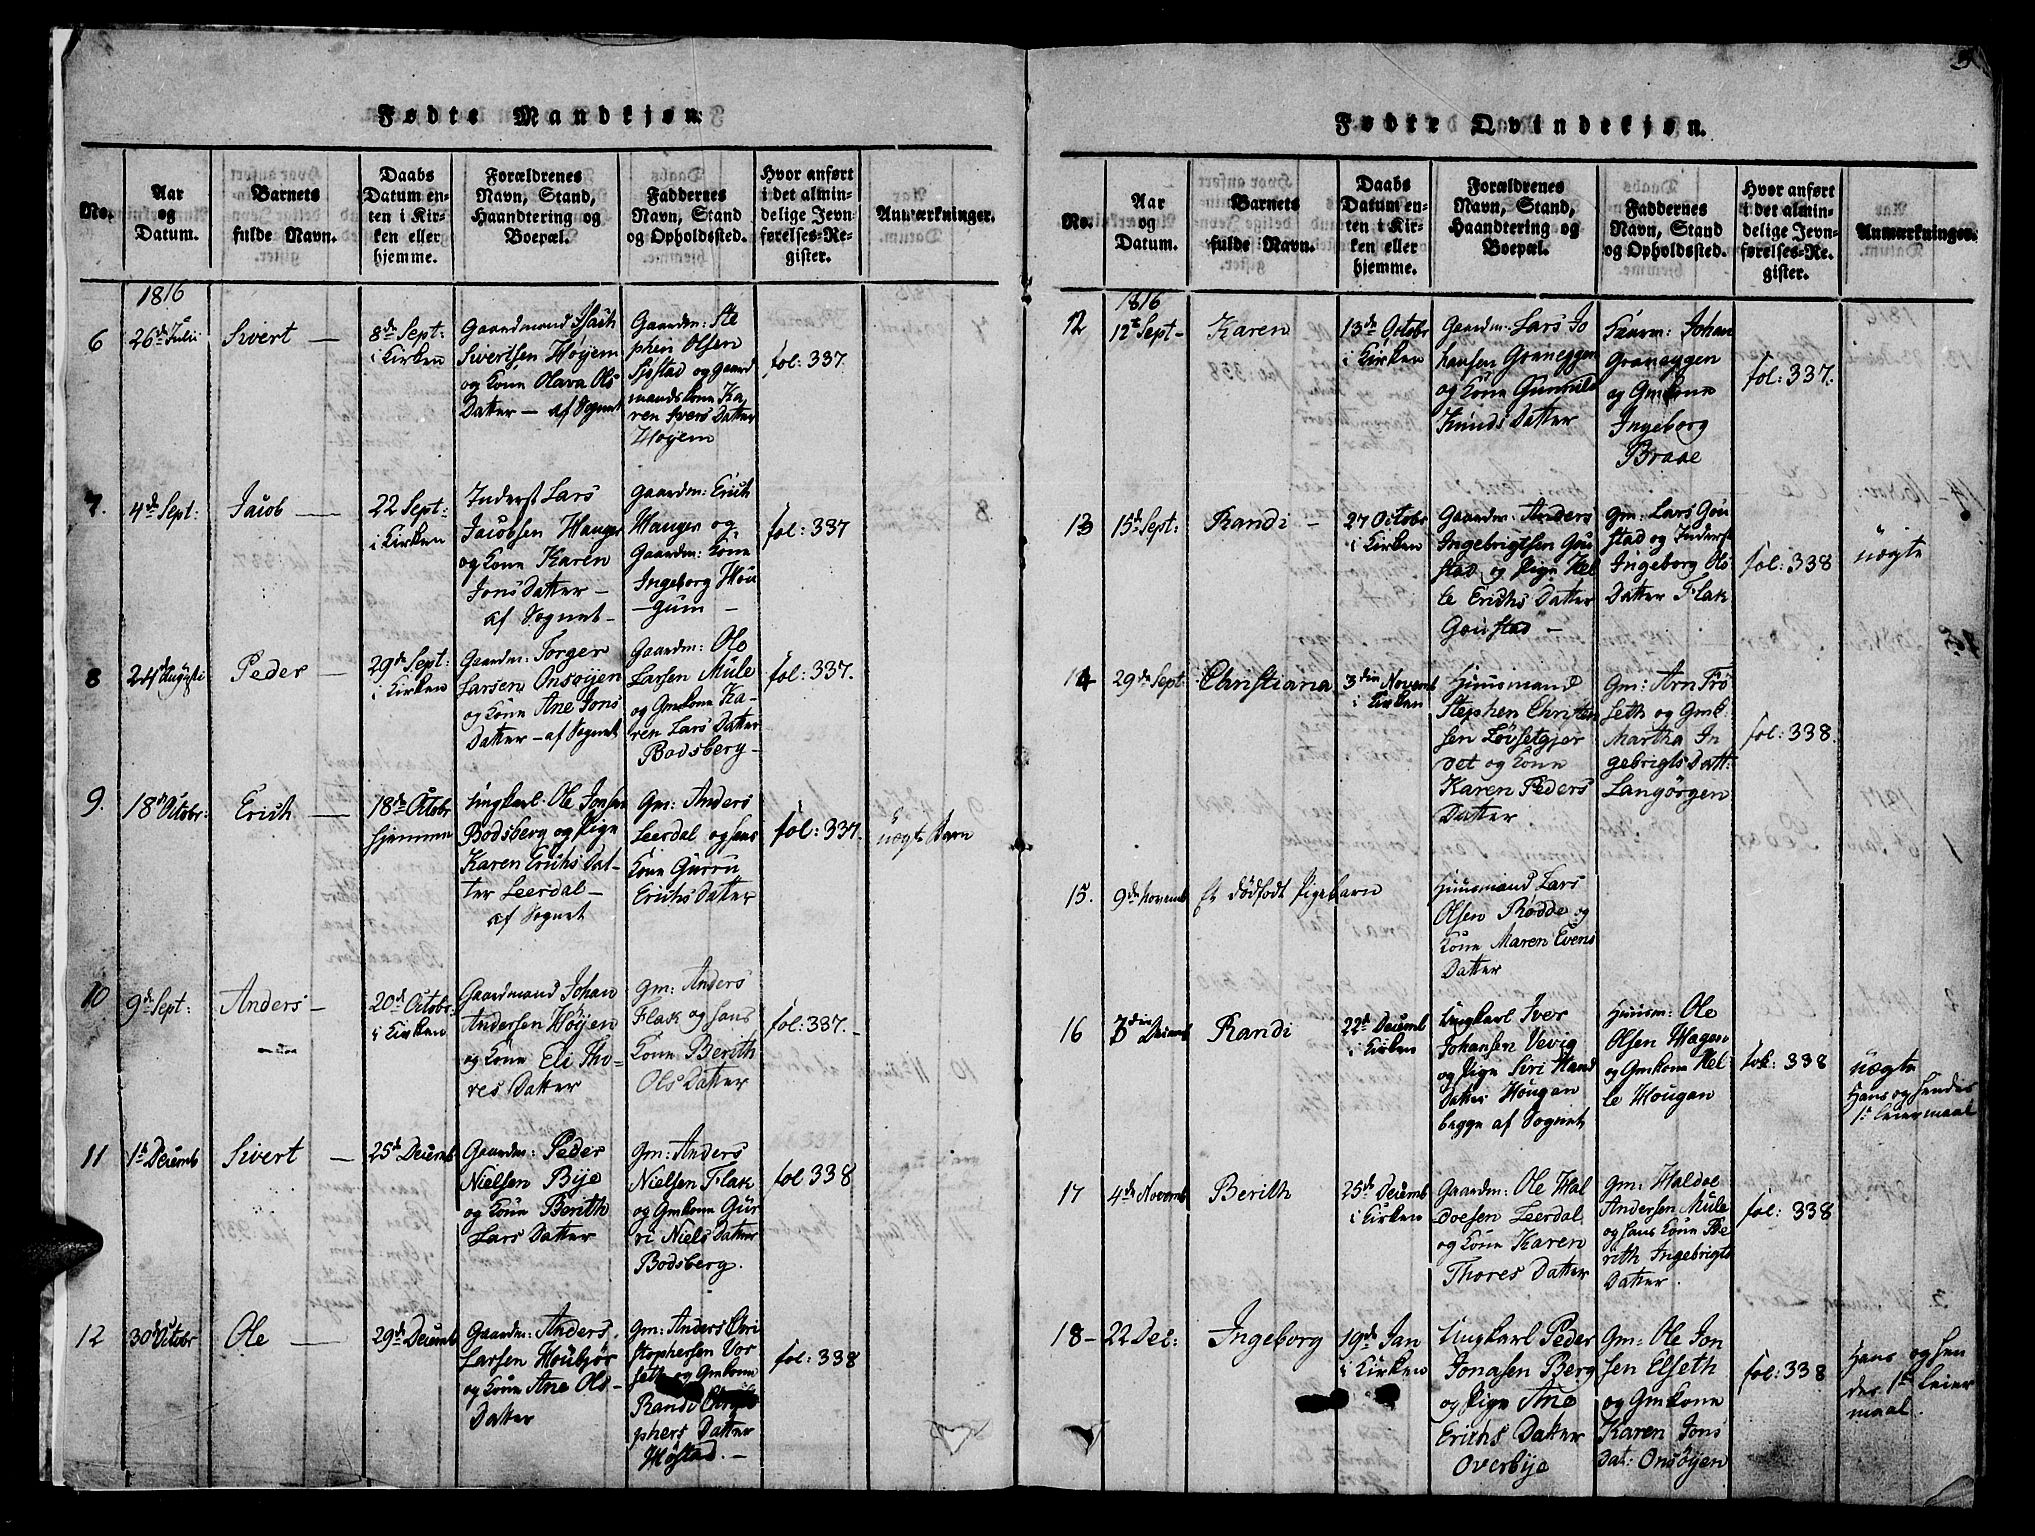 3
Fødte Mandkjøn.
No.
Aar
og
Datum.
Barnets
fulde Navn.
Daabs
Datum en-
ten i Kir-
ken eller
hjemme.
Forældrenes
Navn, Stand,
Haandtering og
Boepæl.
Faddernes
Navn, Stand
og Opholdssted.
Hvor anført
i det almin-
delige Jevn-
førelses-Re-
gister.
Anmærkninger.
1816
6
26de Julii
Sivert —
8de Sept:
i Kirken
Gaardmand Isach
Sivertsen Høyem
og Kone Olava Ols
Datter — af Sognet
Gaardm: Ste
phen Olsen
Sjøstad og Gaard
mandskone Ka
ren Ivers Datter
Høyem
fol: 337
7.
4de Sept:
Jacob —
22 Sept:
i Kirken
Inderst Lars
Jacobsen Hanger
og Kone Karen
Jons Datter —
af Sognet —
Gaardm: Erich
Hanger og
Gaardm: Kone
Ingeborg Hou-
-gum —
fol: 337
8
24de Augusti
Peder —
29de Sept:
i Kirken
Gaardm: Torger
Larsen Onsøyen
og Kone Ane Jons
Datter — af Sognet
Gaardm: Ole
Larsen Mule
og Gmkone Ka-
ren Lars Datter
Bodsberg —
fol: 337.
9.
18de Octobr:
Erich —
18de Octobr
hjemme
Ungkarl Ole Jonsen
Bodsberg og Pige
Karen Erichs Dat-
ter Leerdal —
af Sognet
Gm: Anders
Leerdal og hans
Kone Gurru
Erichs Datter
fol: 337.
uægte Barn
10
9de Sept:
Anders —
20de Octobr:
i Kirken
Gaardmand Johan
Andersen Høyen
og Kone Eli Tho-
res Datter
Gm: Anders
Flak og hans
Kone Berith
Ols Datter
fol: 337.
11
1ste Decemb
Sivert —
25de Decemb
Gaardm: Peder
Nielsen Bye
og Kone Berith
Lars Datter
Gm: Anders
Nielsen Flak
og Gmkone Gur-
ri Niels Datter
Bodsberg.
fol 338
12
30de Octobr
Ole —
29de Decemb
Gaardm: Anders
Larsen Houbjør
og Kone Ane Ols-
Datter
Gm: Anders Chri
stophersen Vor
seth og Gmkone
Randi Christo
phers Datter
Høstad. —
fol: 338
Fødte Qvindekjøn.
No.
Aar
og
Datum.
Barnets
fulde Navn.
Daabs
Datum en-
ten i Kir-
ken eller
hjemme.
Forældrenes
Navn, Stand,
Haandtering og
Boepæl.
Faddernes
Navn, Stand
og Opholdssted.
Hvor anført
i det almin-
delige Jevn-
førelses-Re-
gister.
Anmærkninger.
1816
12
12te Sept —
Karen
13de Octobr
i Kirken
Gaardm: Lars Jo
hansen Graneggen
og Kone Gunnild
Knuds Datter
Kaarm: Johan
Graneggen
og Gmkone
Ingeborg
Braae
fol: 337.
13
15de Sept:
Randi —
27 Octobr
i Kirken
Gaardm: Anders
Ingebrigtsen Gou
stad og Pige Kel
le Erichs Datter
Goustad —
Gm: Lars Gou
stad og Inderst
Ingeborg Ols
Datter Flak
fol: 338
uægte
14
29de Sept:
Christiana
3die Novemb
i Kirken
Huusmand
Stephen Christen
sen Løvsetgjer
det og Kone
Karen Peders
Datter
Gm: Arn Frø
seth og Gmk:
Martha In
gebrigts Datt:
Langørgen
fol: 338.
15.
9de Novemb
Et dødfødt Pigebarn
Huusmand Lars
Olsen Rødde og
Kone Maren Evens
Datter
16
3die Decemb
Randi
22de Decemb
i Kirken
Ungkarl Iver
Johansen Vevig
og Pige Siri Haand
Datter Hougan
begge af Sognet
Huusm: Ole
Olsen Hagen
og Gmkone Kel
le Hougan
fol: 338
uægte
Hans og hendes
1ste Leiermaal
17
4de Novemb
Berith
25de Decemb
i Kirken
Gaardm: Ole Hal
doesen Leerdal
og Kone Karen
Thores Datter
Gm: Haldoe
Andersen Mule
og hans Kone Be
rith Ingebrigts
Datter.
fol: 338
18 —
22 Dec:
Ingeborg
19de Jan
i Kirken
Ungkarl Peder
Jonasen Berg
og Pige Ane
Erichs Datter
Overbye
Gm: Ole Jon
sen Elseth
og Gmkone
Karen Jons
Dat: Onsøyen
fol: 338
Hans og hen
des 1ste Leier
maal.